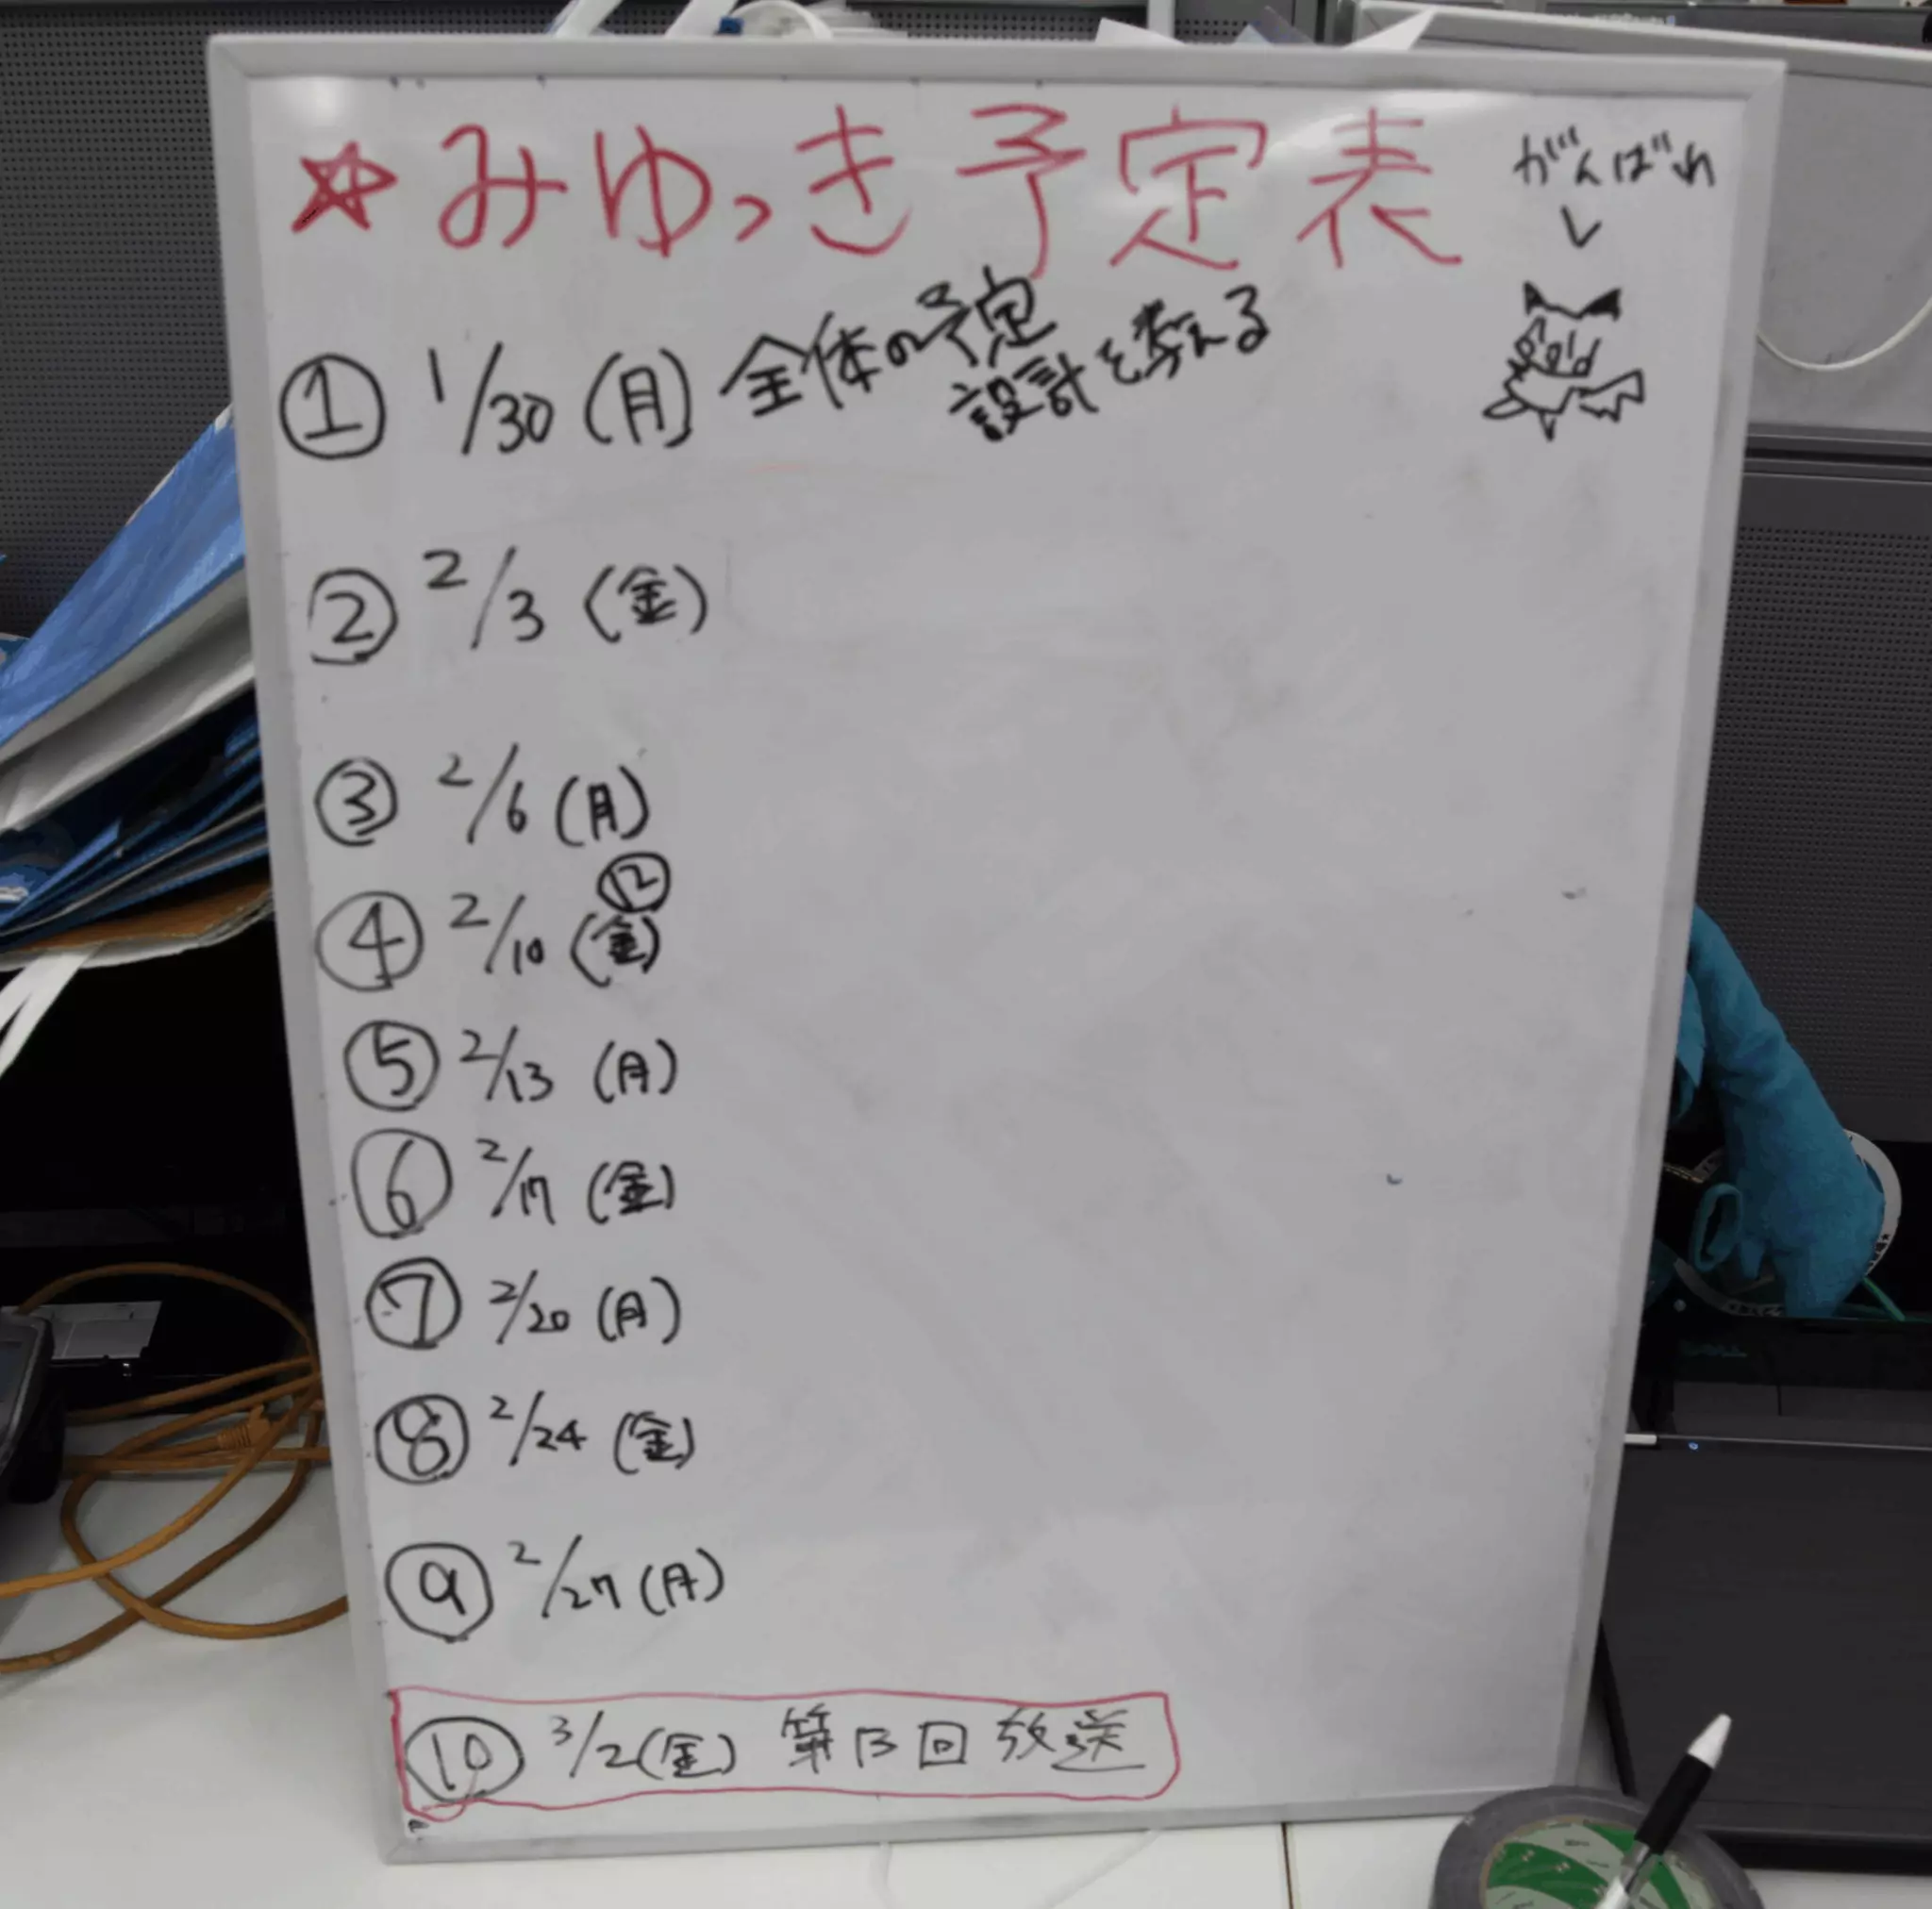 ☆みゆっき予定表
がんばれ
① 1/30 (月) 全体の予定
設計を考える
② 2/3 (金)
③ 2/6 (月)
⑫
④ 2/10 (金)
⑤ 2/13 (月)
⑥ 2/17 (金)
⑦ 2/20 (月)
⑧ 2/24 (金)
⑨ 2/27 (月)
⑩ 3/2 (金) 第13回 放送